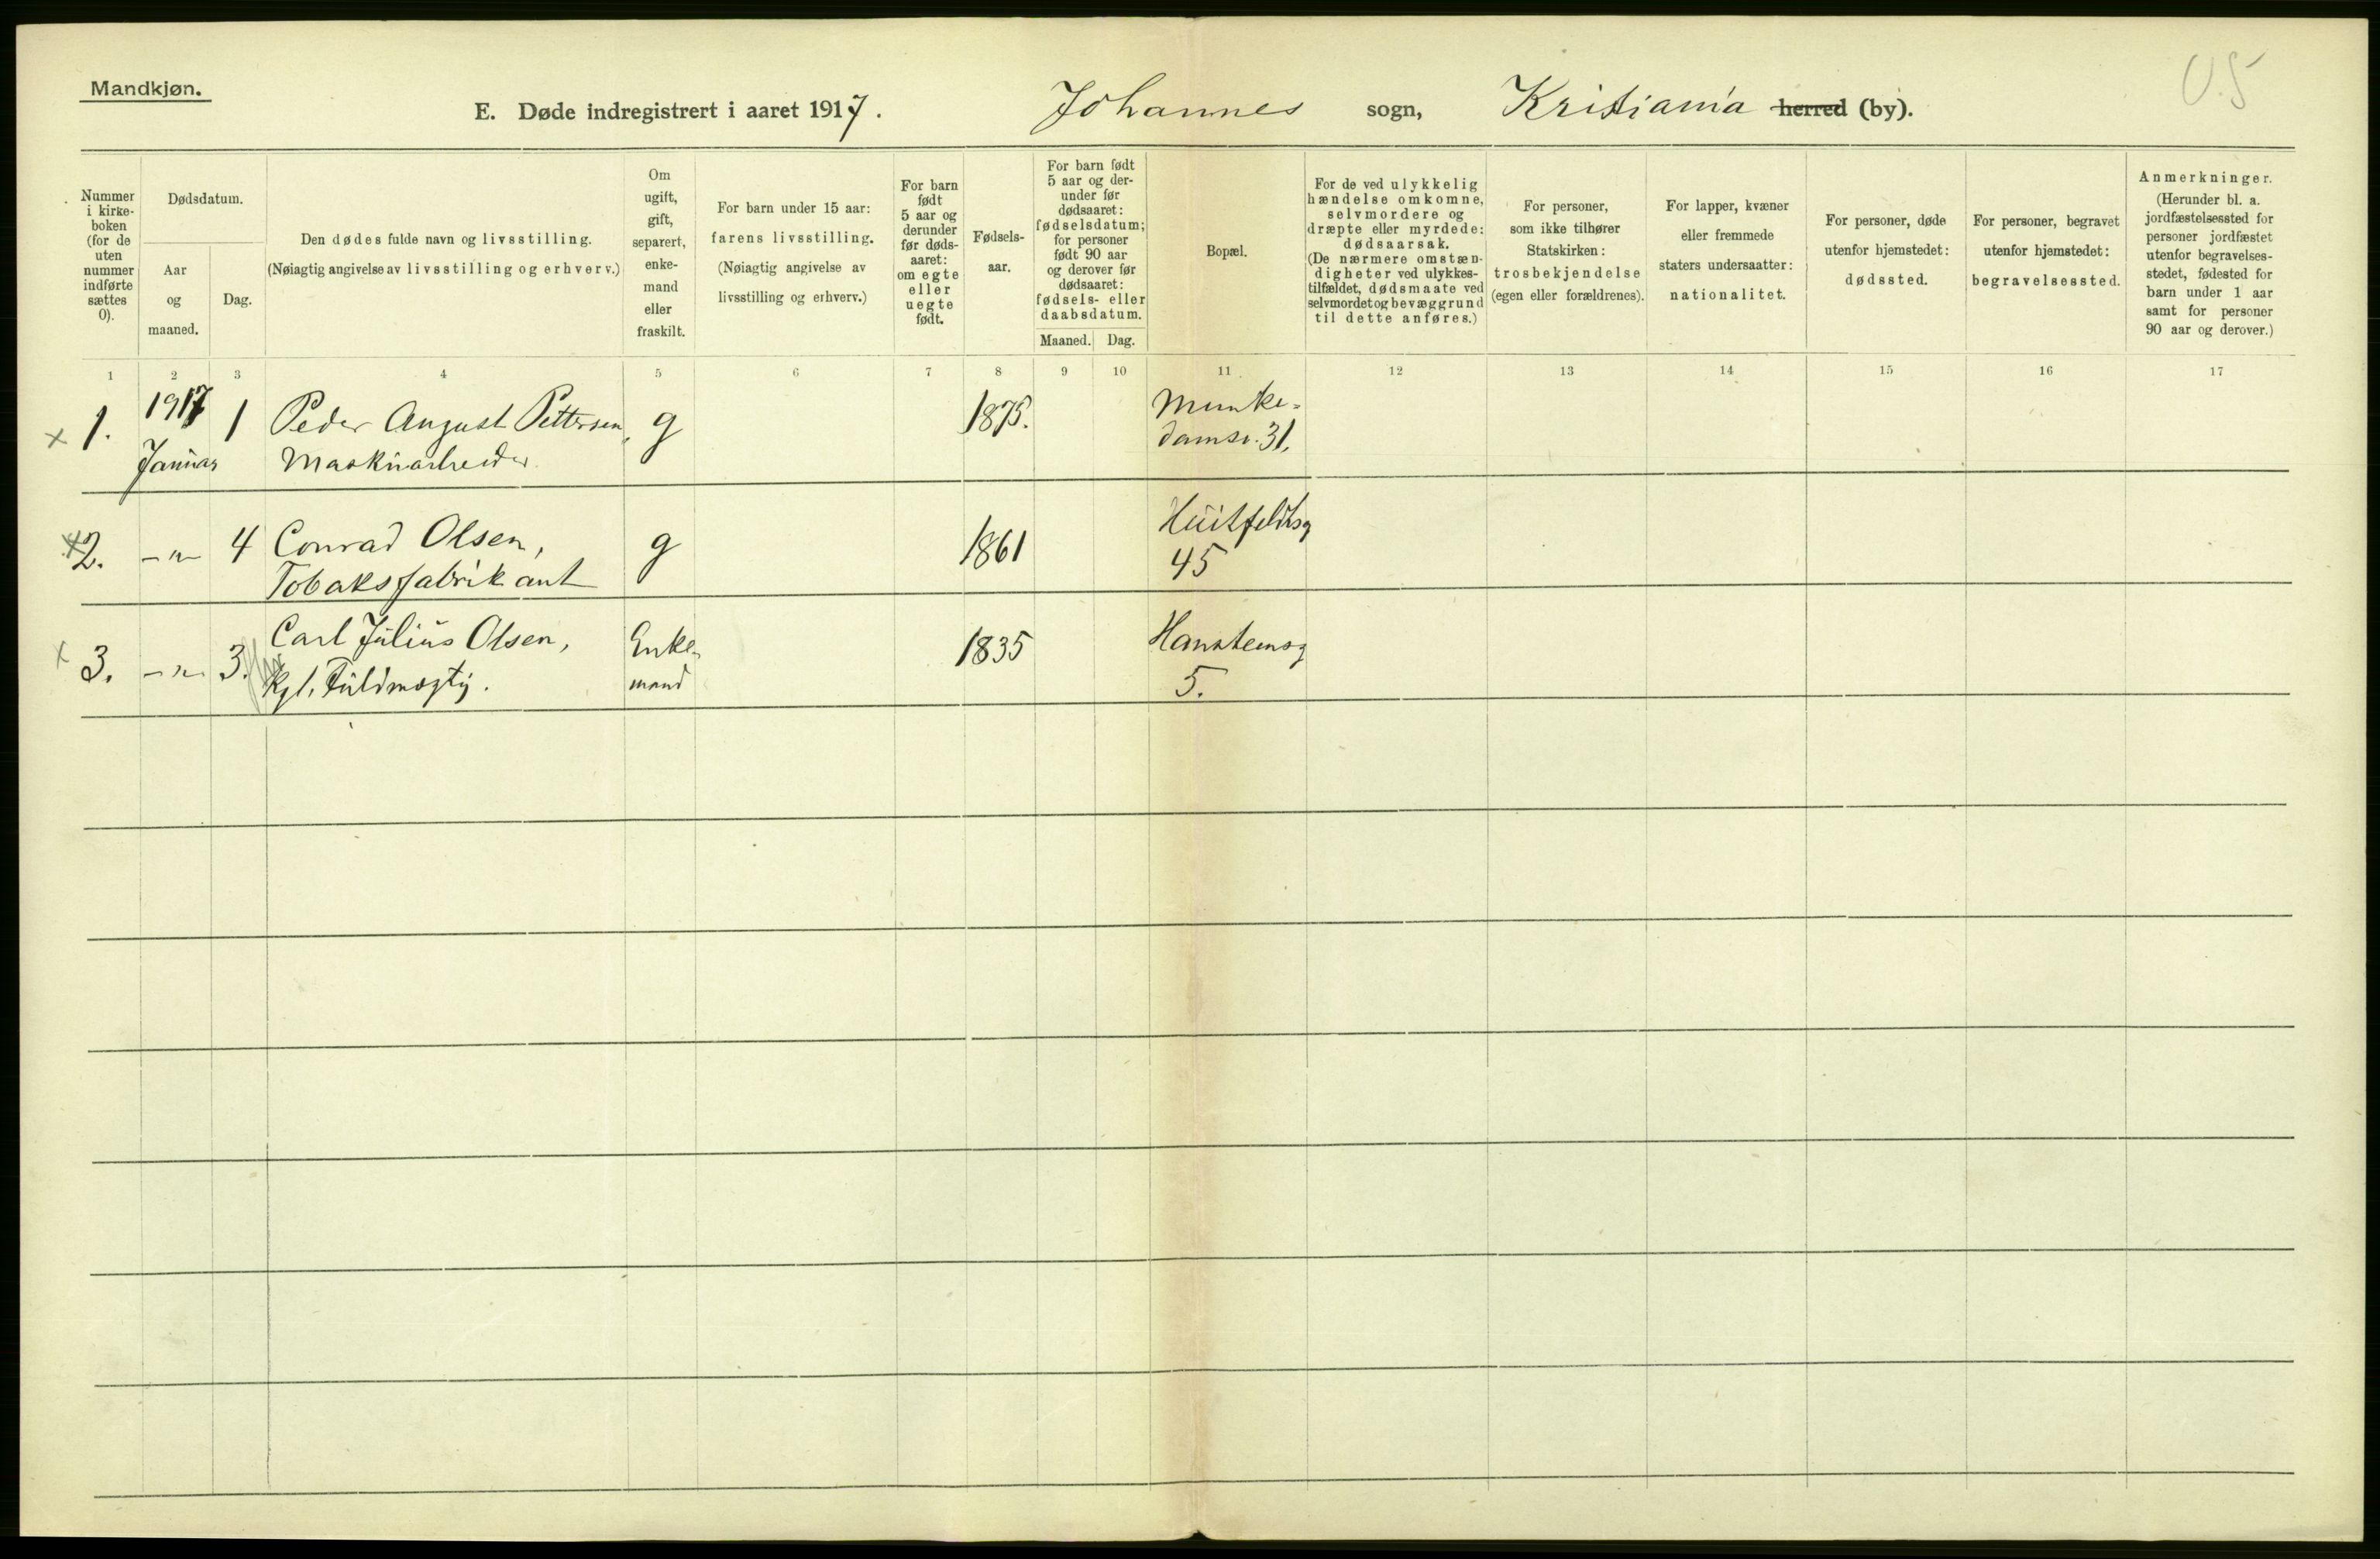 Mandkjøn.
E. Døde indregistrert i aaret 1917. Johannes sogn, Kristiania herred (by).
Nummer i kirke-boken (for de uten nummer indførte sættes 0).
Dødsdatum.
Aar og maaned.
Dag.
Den dødes fulde navn og livsstilling.
(Nøiagtig angivelse av livsstilling og erhverv.)
Om ugift, gift, separert, enke-mand eller fraskilt.
For barn under 15 aar:
farens livsstilling.
(Nøiagtig angivelse av
livsstilling og erhverv.)
For barn født 5 aar og derunder før døds-aaret: om egte eller uegte født.
Fødsels-aar.
For barn født 5 aar og der-under før dødsaaret: fødselsdatum; for personer født 90 aar og derover før dødsaaret: fødsels- eller daabsdatum.
Maaned. Dag.
Bopæl.
For de ved ulykkelig hændelse omkomne, selvmordere og dræpte eller myrdede: dødsaarsak.
(De nærmere omstæn-digheter ved ulykkes-tilfældet, dødsmaate ved selvmordet og bevæggrund til dette anføres.)
For personer, som ikke tilhører Statskirken: trosbekjendelse (egen eller forældrenes).
For lapper, kvæner eller fremmede staters undersaatter: nationalitet.
For personer, døde utenfor hjemstedet: dødssted.
For personer, begravet utenfor hjemstedet: begravelsessted.
Anmerkninger.
(Herunder bl. a. jordfæstelsessted for personer jordfæstet utenfor begravelses-stedet, fødested for barn under 1 aar samt for personer 90 aar og derover.)
1 2 3 4 5 6 7 8 9 10 11 12 13 14 15 16 17
x 1. 1917 Januar 1 Peder August Pettersen, g 1875. Munke=
Maskinarbeider. damsv. 31.
x 2. -"- 4 Conrad Olsen, g 1861 Huitfeldtsg
Tobaksfabrikant 45
x 3. -"- 3. Carl Julius Olsen, Enke- 1835 Hansteensg
Kgl. Fuldmægtig. mand 5.